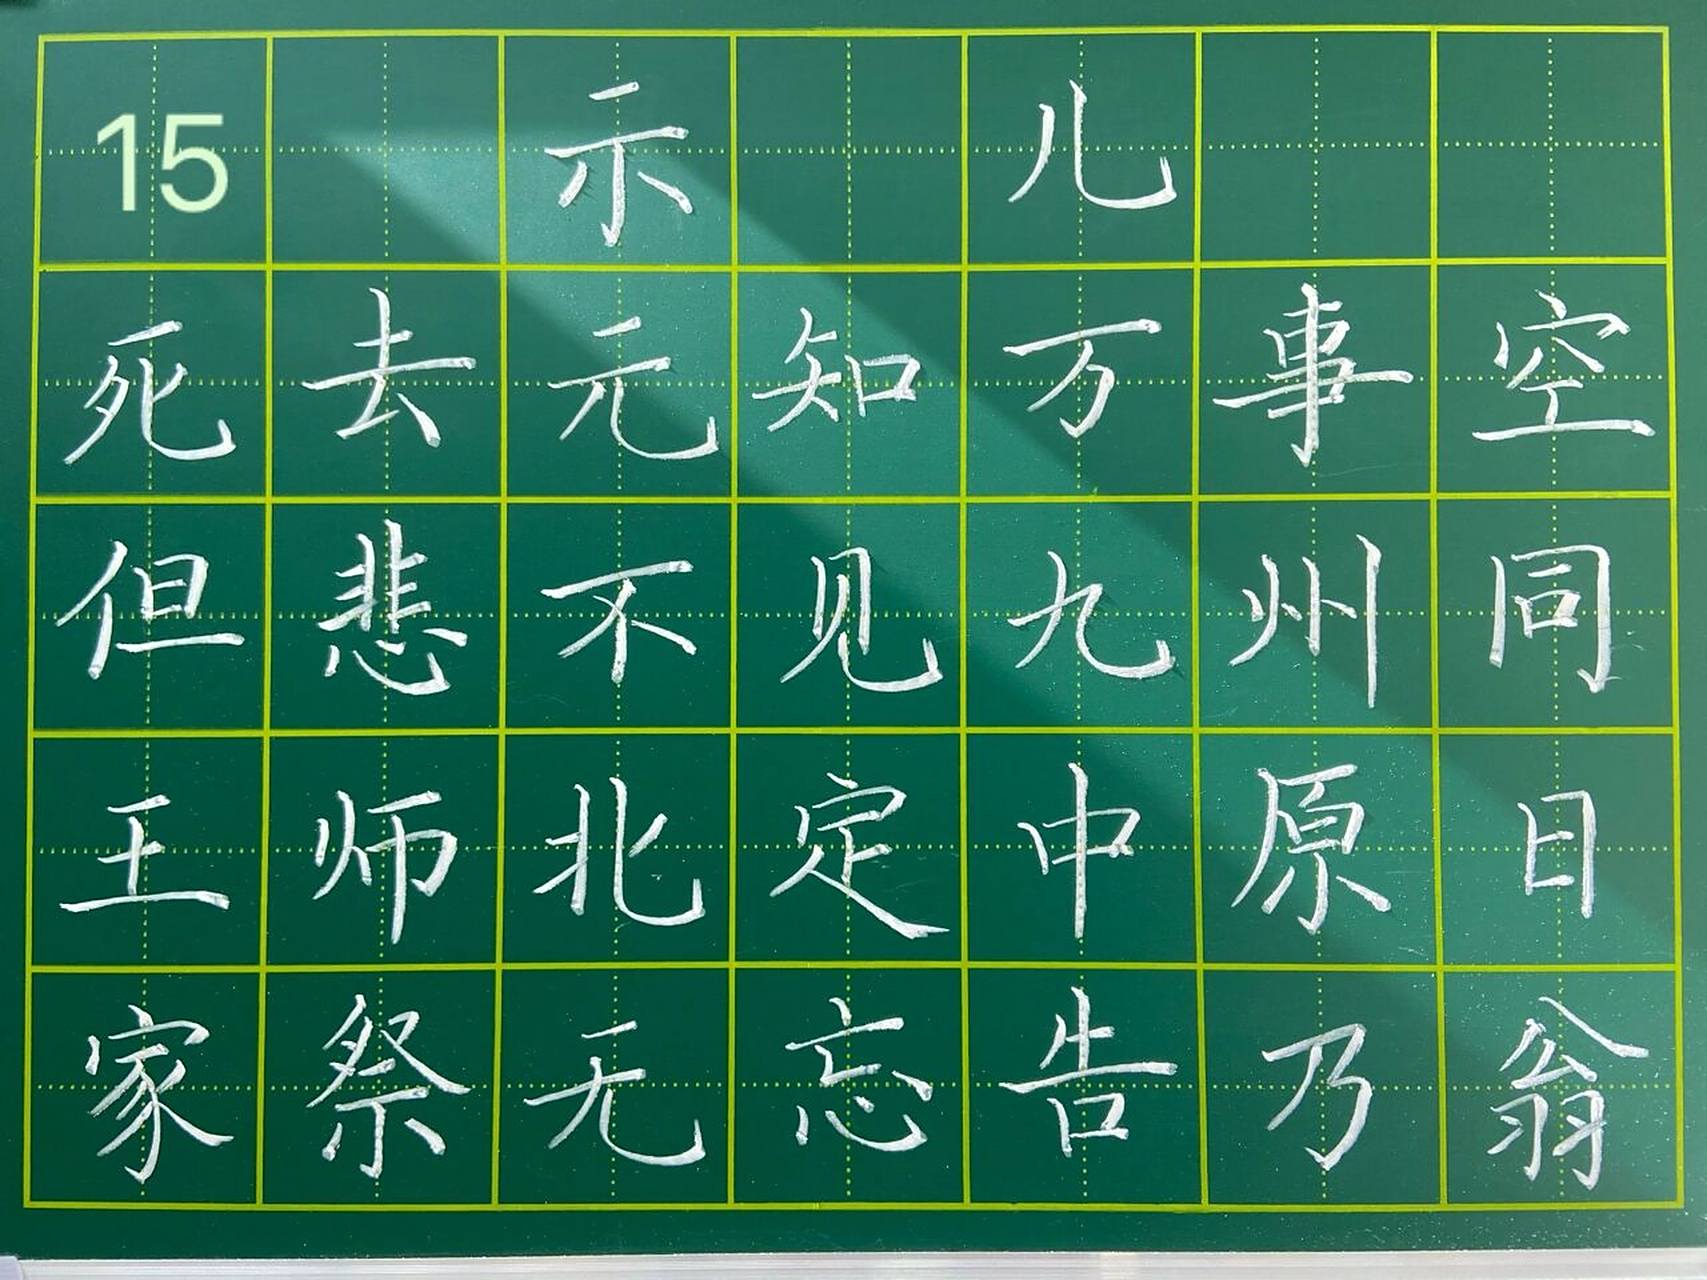 15 示 儿
死去元知万事空
但悲不见九州同
王师北定中原日
家祭无忘告乃翁